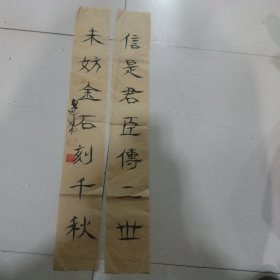 信是君臣傳一世
未妨金石刻千秋